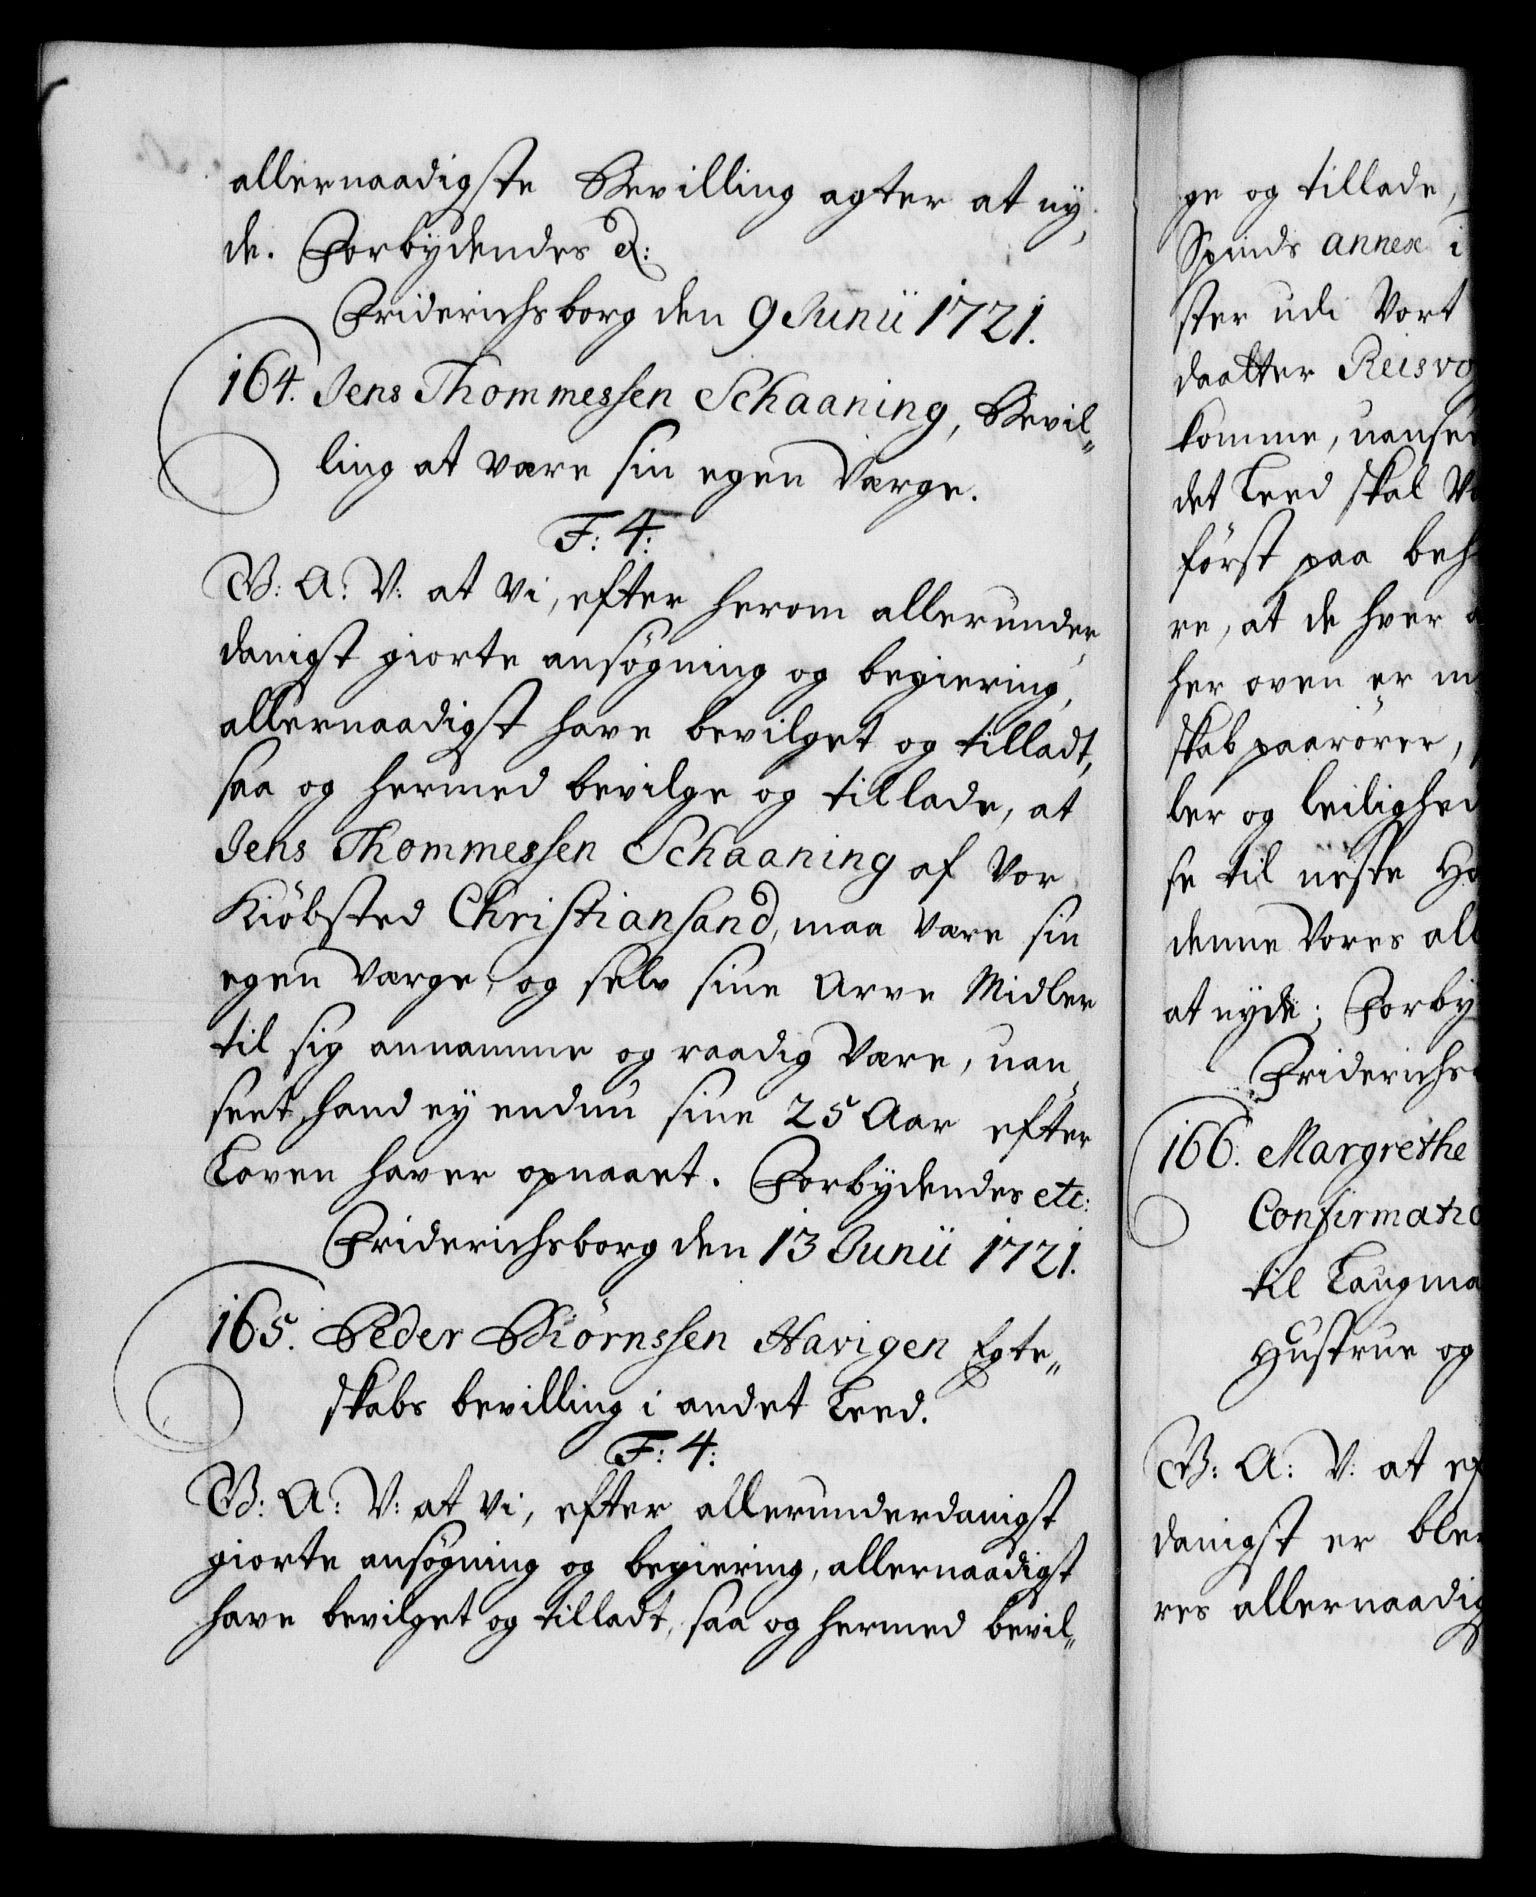 allernaadigste Bevilling agter at ny,
de. Forbydendes &:
Friderichsborg den 9 Junii 1721.
164. Jens Thommessen Schaaning, Bevil„
ling at være sin egen Værge.
F: 4:
V: A: V: at Vi, efter herom allerunder,
danigst giorte ansøgning og begiering,
allernaadigst have bevilget og tilladt,
saa og hermed bevilge og tillade, at
Jens Thommessen Schaaning af Vor
Kiöbsted Christiansand, maa være sin
egen Værge, og selv sine Arve Midler
til sig annamme og raadig være, uan,
seet, hand ey endnu sine 25 Aar efter
Loven haver opnaaet. Forbydendes etc:
Friderichsborg den 13 Junii 1721.
165. Peder Biörnssen Havigen Egte„
skabs bevilling i andet Leed.
F: 4:
V: A: V: at Vi, efter allerunderdanigst
giorte ansögning og begiering, allernaadigst
have bevilget og tilladt, saa og hermed bevil„
ge og tillade,
Spinds annex i
ster udi Vort
daatter Reisvo
komme, uansee
det Leed skal V
först paa beh
re, at de hver
her oven er m
skab paarörer,
ler og leilighed
se til neste Ho
denne Vores all
at nyde; Forby
Friderichs
166. Margrethe
Confirmatio
til Laugma
Hustrue og
V: A: V: at ef
danigst er ble
res allernaadig